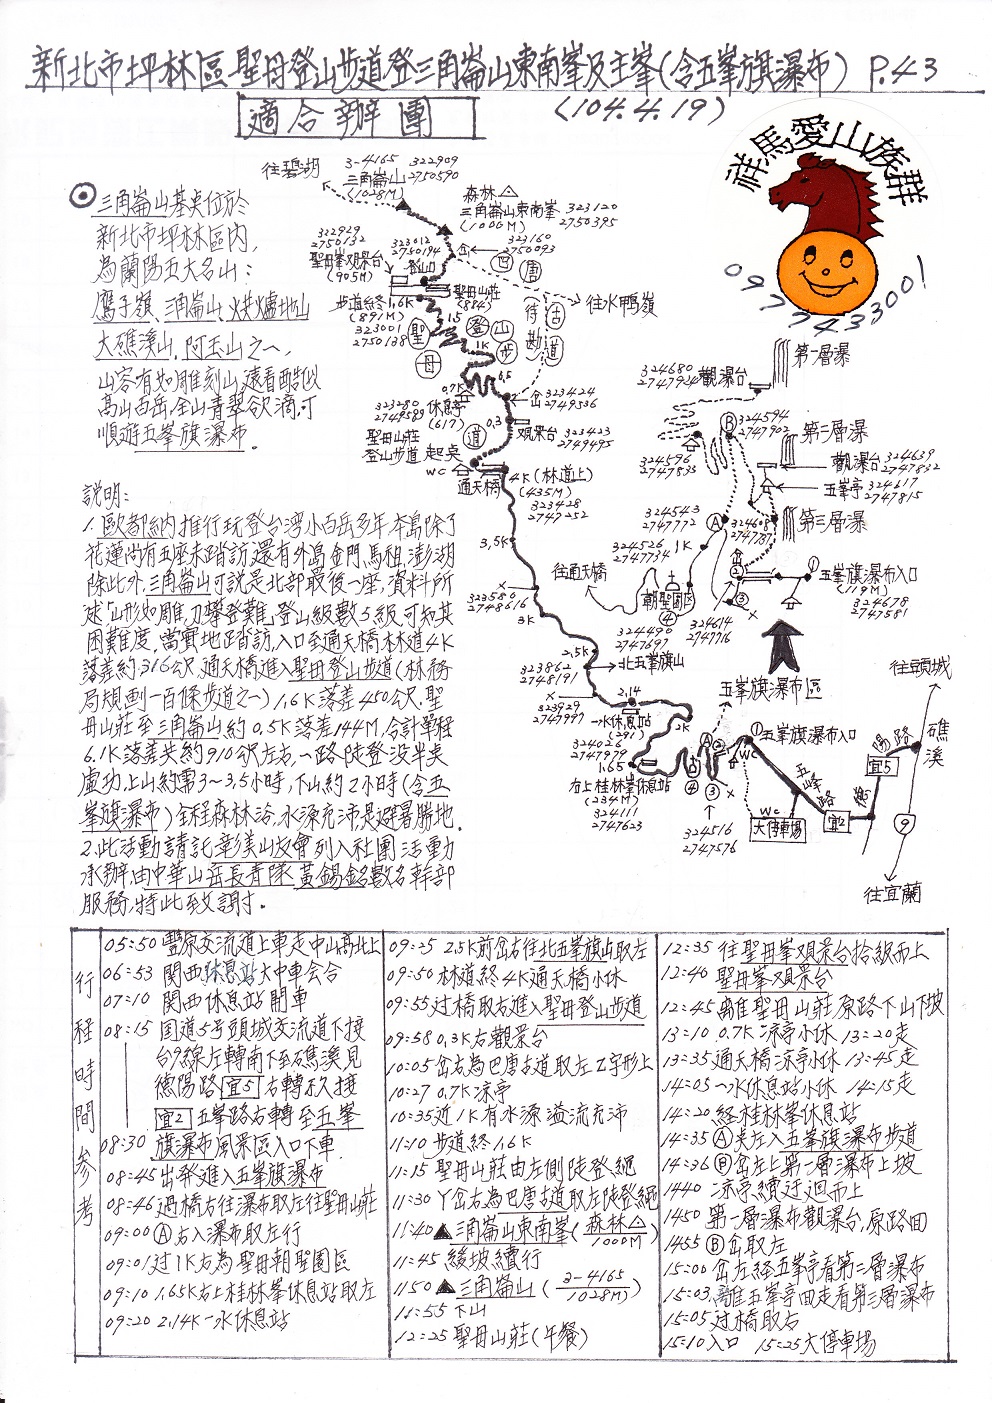 新北市坪林區聖母登山步道登三角崙山東南峯及主峯(含五峯旗瀑布) P.43
適合辦團
(104.4.19)
祥馬愛山族群
0977433001
三角崙山基點位於
新北市坪林區內,
為蘭陽五大名山:
鷹子嶺、三角崙山、烘爐地山
大礁溪山,阿玉山之一,
山容有如雕刻山,遠看酷似
高山百岳,全山青翠欲滴,可
順遊五峯旗瀑布.
説明:
1.歐都納推行玩登台湾小百岳多年本島除了
花蓮尚有五座未踏訪,還有外島金門,馬祖,澎湖
除此外,三角崙山可說是北部最後一座,資料所
述「山形如雕刀攀登難,登山級數5級,可知其
困難度,當實地踏訪,入口至通天橋林道4K
落差約316公尺,通天橋進入聖母登山步道(林務
局規劃一百條步道之一)1.6K落差450公尺,聖
母山莊至三角崙山約0.5K落差144M,合計單程
6.1K落差共約910公尺左右,一路陡登没半点
虛功,上山約需3~3.5小時,下山約2小時(含五
峯旗瀑布)全程森林浴,水源充沛是避暑勝地.
2.此活動請託彰美山友會列入社團活動
承辦,由中華山岳長青隊黃錫銘數名幹部
服務,特此致謝.
往碧湖
3-4165
三角崙山
(1028M)
322909
2750590
森林
三角崙山東南峯
(1000M)
323120
2750395
322929
2750132
聖母峯观景台
(905M)
323012
2750194
登山口
323160
2750093
聖母山莊
(884)
步道終 1.6K
(891M)
323001
2750128
聖母登山步道
四周古道
待勘
往水鴨嶺
1.5
1K
0.5
0.7K
323280
2749589
休息亭
(617)
323424
2749536
0.3
观景台
323423
2749495
聖母山莊
登山步道 起点
WC
通天橋
4K(林道上)
(435M)
323428
2747252
3.5K
323580
2748616
3K
2.5K
北五峯旗山
323862
2748191
2.14
323929
2747997
一水休息站
(291)
2K
324026
2747979
1.65
右上桂林峯休息站
(234M)
324111
2747623
324516
2747576
第一層瀑
324680
2747924
觀瀑台
324594
2747902
第二層瀑
324596
2747835
觀瀑台
324639
2747832
五峯亭
324617
2747815
324543
2747772
324608
2747787
第三層瀑
324526
2747734
1K
往通天橋
朝聖園區
324490
2747697
324614
2747716
五峯旗瀑布入口
(119M)
324678
2747581
五峯旗瀑布區
五峯旗瀑布入口
WC
WC
大停車場
五峰路
宜2
德陽路
宜5
礁溪
往頭城
9
往宜蘭
行程時間參考
05:50 豐原交流道上車走中山高北上
06:53 関西休息站大中車会合
07:10 関西休息站開車
08:15 国道5号頭城交流道下接
台9線左轉南下至礁溪見
德陽路宜5右轉不久接
宜2五峯路右轉至五峯
08:30 旗瀑布風景區入口下車.
08:45 出發進入五峯旗瀑布
08:46 過橋右往瀑布取左往聖母山莊
09:00 Ⓐ右入瀑布取左行
09:01 过1K右為聖母朝聖園區
09:10 1.65K右上桂林峯休息站取左
09:20 2.14K一水休息站
09:25 2.5K前岔右往北五峯旗山取左
09:50 林道終4K通天橋小休
09:55 过橋取右進入聖母登山步道
09:58 0.3K右觀景台
10:05 岔右為巴唐古道取左Z字形上
10:27 0.7K涼亭
10:35 近1K有水源溢流充沛
11:10 步道終1.6K
11:15 聖母山莊由左側陡登繩
11:30 丫岔右為巴唐古道取左陡登繩
11:40 ▲三角崙山東南峯(森林△ 1000M)
11:45 緩坡續行
1150 ▲三角崙山(3-4165 1028M)
11:55 下山
12:25 聖母山莊(午餐)
12:35 往聖母峯观景台拾級而上
12:40 聖母峯观景台
12:45 離聖母山莊,原路下山下坡
13:10 0.7K涼亭小休 13:20走
13:35 通天橋涼亭小休 13:45走
14:05 一水休息站小休 14:15走
14:20 経桂林峯休息站
14:35 Ⓐ点左入五峯旗瀑布步道
14:36 Ⓑ岔左上第一層瀑布上坡
1440 涼亭續迂迴而上
1450 第一層瀑布觀瀑台,原路回
1455 Ⓑ岔取左
15:00 岔左経五峯亭看第二層瀑布
15:03 離五峯亭回走看第三層瀑布
15:05 过橋取右
15:10 入口 15:25大停車場